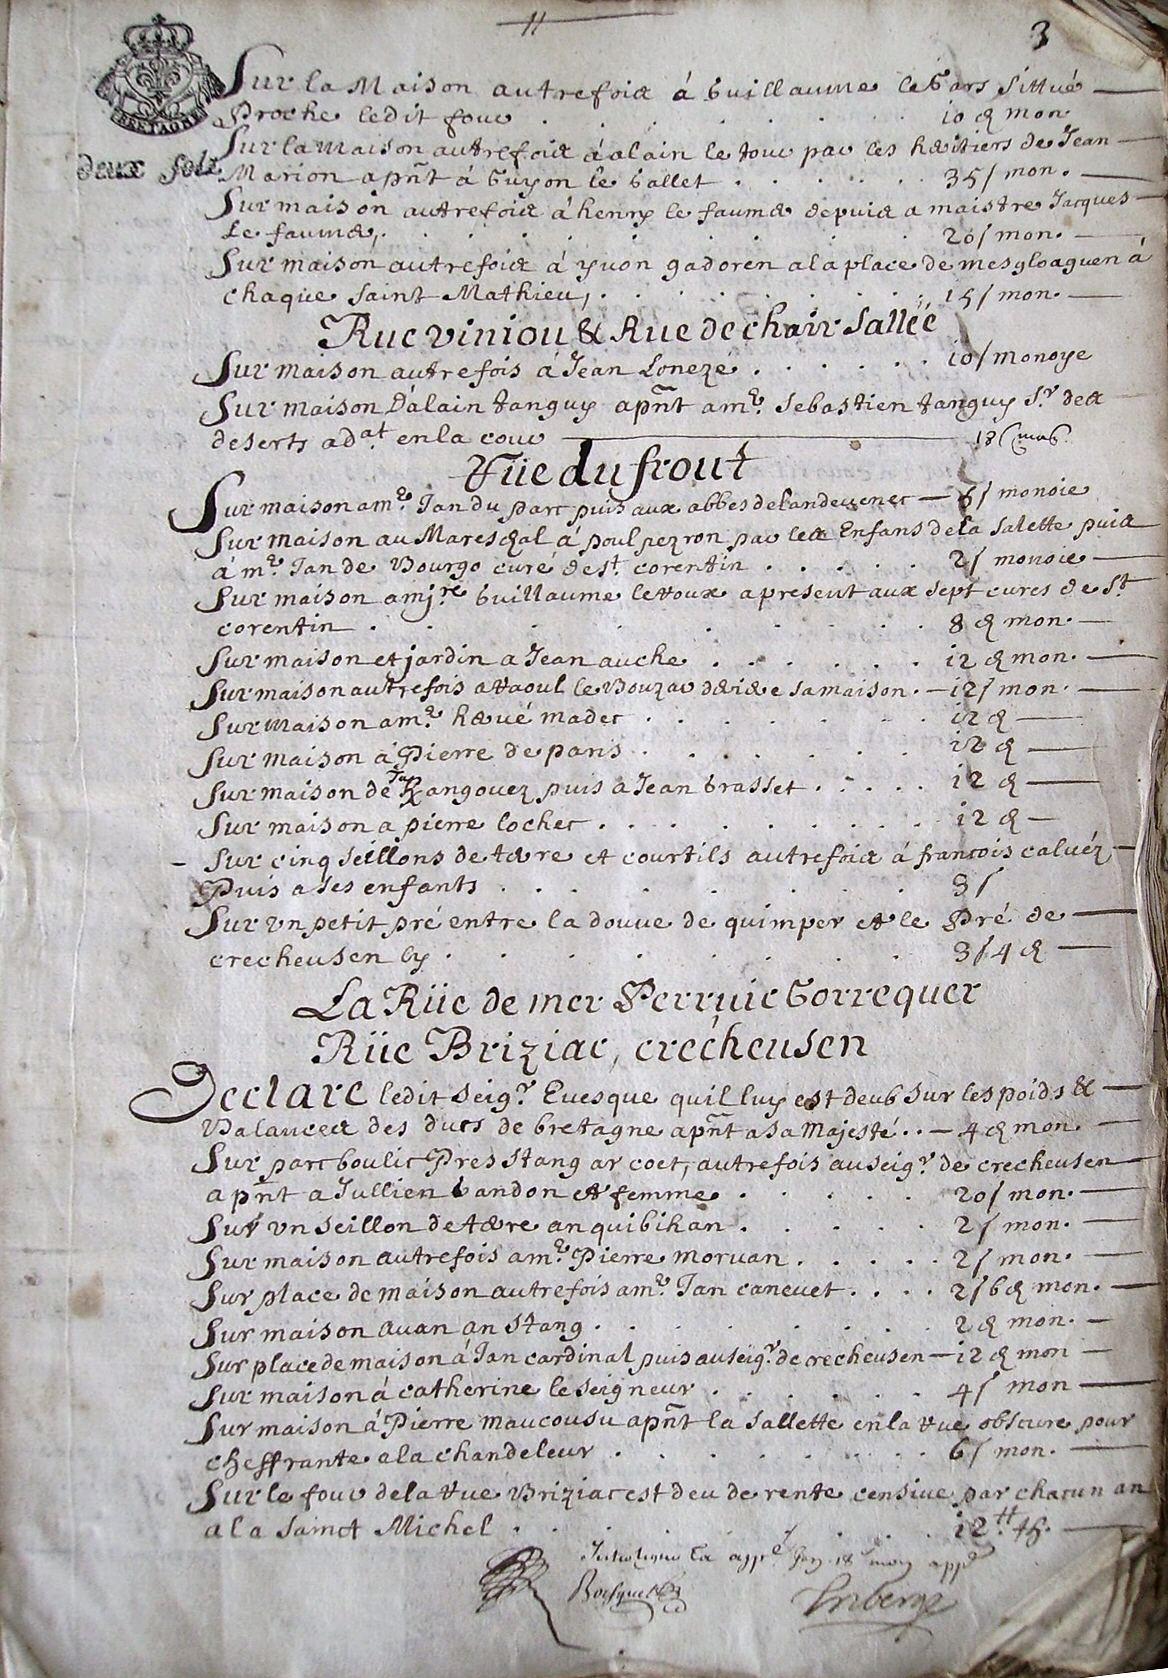 11
3
BRETAGNE
deux sols
Sur la Maison autrefois á Guillaume le Gars Sittué
Proche ledit four . . . . . . . 10 d mon
Sur la maison autrefois á alain le tour par les héritiers de Jean
Marion apñt á Guyon le Gallet . . . . . 35 s mon.
Sur maison autrefois á henry le faume depuis a maistre Jacques
Le faume, . . . . . . . . 20 s mon.
Sur maison autrefois á yvon gadoren a la place de mesgloaguen á
chaque Saint Mathieu, . . . . . . 15 s mon.
Rue viniou & Rue de chair Sallée
Sur maison autrefois á Jean Lonezé . . . . . . 10 s monoye
Sur maison D'alain tanguy apñt a mr. Sebastien tanguy Sr. des
deserts adat. en la cour 18 s
Rüe du frout
Sur maison a mr. Jan du parc puis aux abbes de landeuenec 6 s monoie
Sur maison au Mareschal á poulpezron par les Enfans de la Salette puis
á mr. Jan de Bourgo curé de St. corentin . . . . . 2 s monoie
Sur maison a mire. Guillaume le roux a present aux Sept cures de St
corentin . . . . . . . . 8 d mon.
Sur maison et jardin a Jean auche . . . . . . 12 d mon.
Sur maison autrefois a raoul le Bouzar sa maison . 12 s mon.
Sur maison a mr. hervé madec . . . . . . 12 d
Sur maison á Pierre de paris . . . . . . 12 d
Sur maison de Jan Kangouez puis a Jean brasset . . . . . 12 d
Sur maison a pierre lochec . . . . . . . . 12 d
Sur cinq Seillons de terre et courtils autrefois á francois caluéz
Puis a Ses enfants . . . . . . . 3 s
Sur vn petit pré entre la douue de quimper et le Pré de
crecheusen Cy . . . . . . . . 3 s 4 d
La Rüe de mer Perruic Gorrequer
Rüe Briziac, crécheusen
Declare ledit Seigr. Euesque quil luy est deub Sur les poids &
Balances des ducs de bretagne apñt a Sa Majesté . . 4 d mon.
Sur parc boulic Pres Stang ar coet, autrefois au Seigr. de crecheusen
apñt a Jullien Gandon et femme . . . . . 20 s mon.
Sur vn Seillon de terre an quibihan . . . . . 2 s mon.
Sur maison autrefois a mr. Pierre moruan . . . . . 2 s mon.
Sur place de maison autrefois a mr. Jan caneuet . . . . 2 s 6 d mon.
Sur maison auan an Stang . . . . . . . . 2 d mon.
Sur place de maison á Jan cardinal puis au Seigr. de crecheusen 12 d mon
Sur maison á catherine le Seigneur . . . . . . 4 s mon
Sur maison á Pierre maucousu apñt la Sallette en la rue obscure pour
cheffrante a la chandeleur . . . . . . . 6 s mon.
Sur le four de la rue Briziac est deu de rente censiue par chacun an
a la Sainct Michel . . . . . . . 12 tt